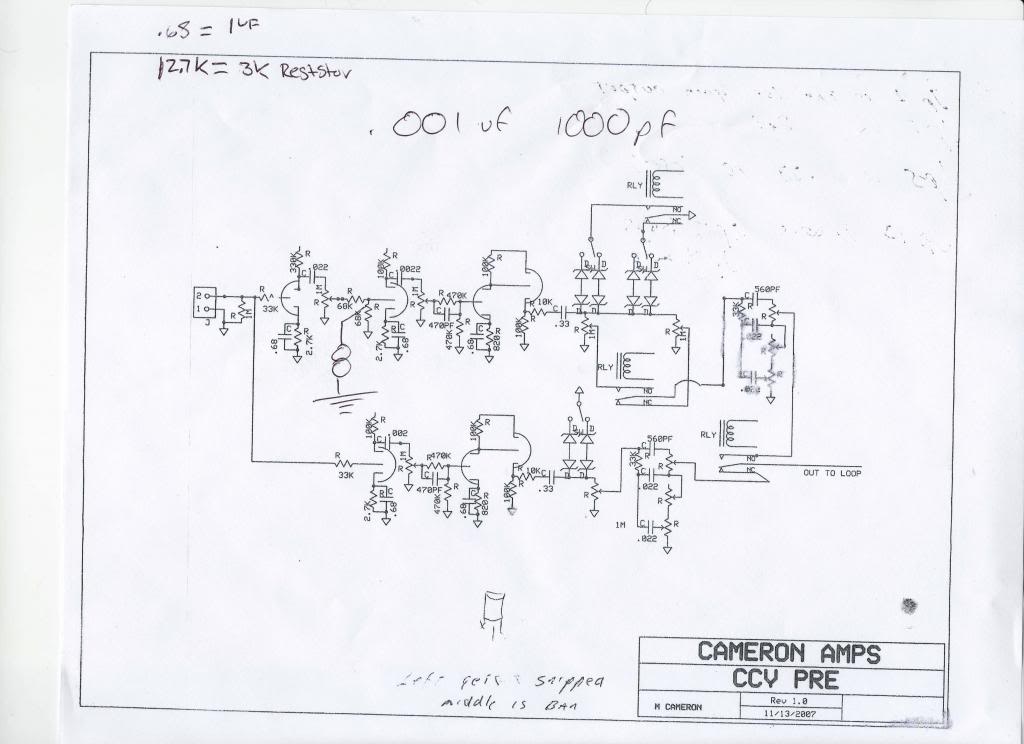 .68 = 1uF
12.7K = 3K Resistor
.001 uf 1000pf
RLY
NO
NC
R 330K C .022 R 100K C .0022 R 100K
2 1 J R 1M R 33K 1M R 68K 68K R 1M R 470K C 470PF 470K R R 10K C .33 100K R
C .68 R 2.7K 2.7K R C .68 C .68 R 820R
D SW D D SW D
R 1M R 1M
RLY
NO
NC
C 560PF
33K R R
C .022
R
C R
.022
R 100K C .002 R 100K
R 33K 1M R R 470K C 470PF 470K R R 10K C .33 100K R
2.7K R C .68 .68 C 820R R
D SW D
D D
R
1M
560PF
C
33K R R
C .022
R
C R
.022
RLY
NO
NC
OUT TO LOOP
snipped
middle is
CAMERON AMPS
CCV PRE
M CAMERON
Rev 1.0
11/13/2007